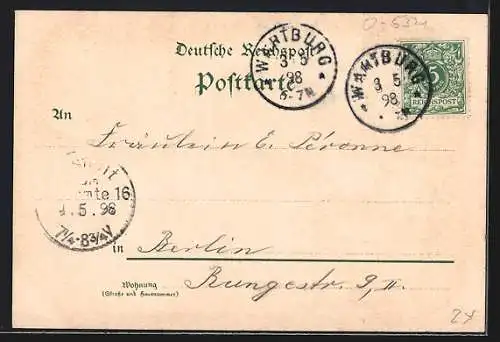 O-5321
Deutsche Reichspost
Postkarte
WARTBURG
3 5
98
6-7N
WARTBURG
3 5
98
5
REICHSPOST
An
Fräulein E. Péronne
16
4.5.98
7¼-8¾V
in Berlin
Wohnung
(Straße und Hausnummer)
Rungestr. 9, II.
24